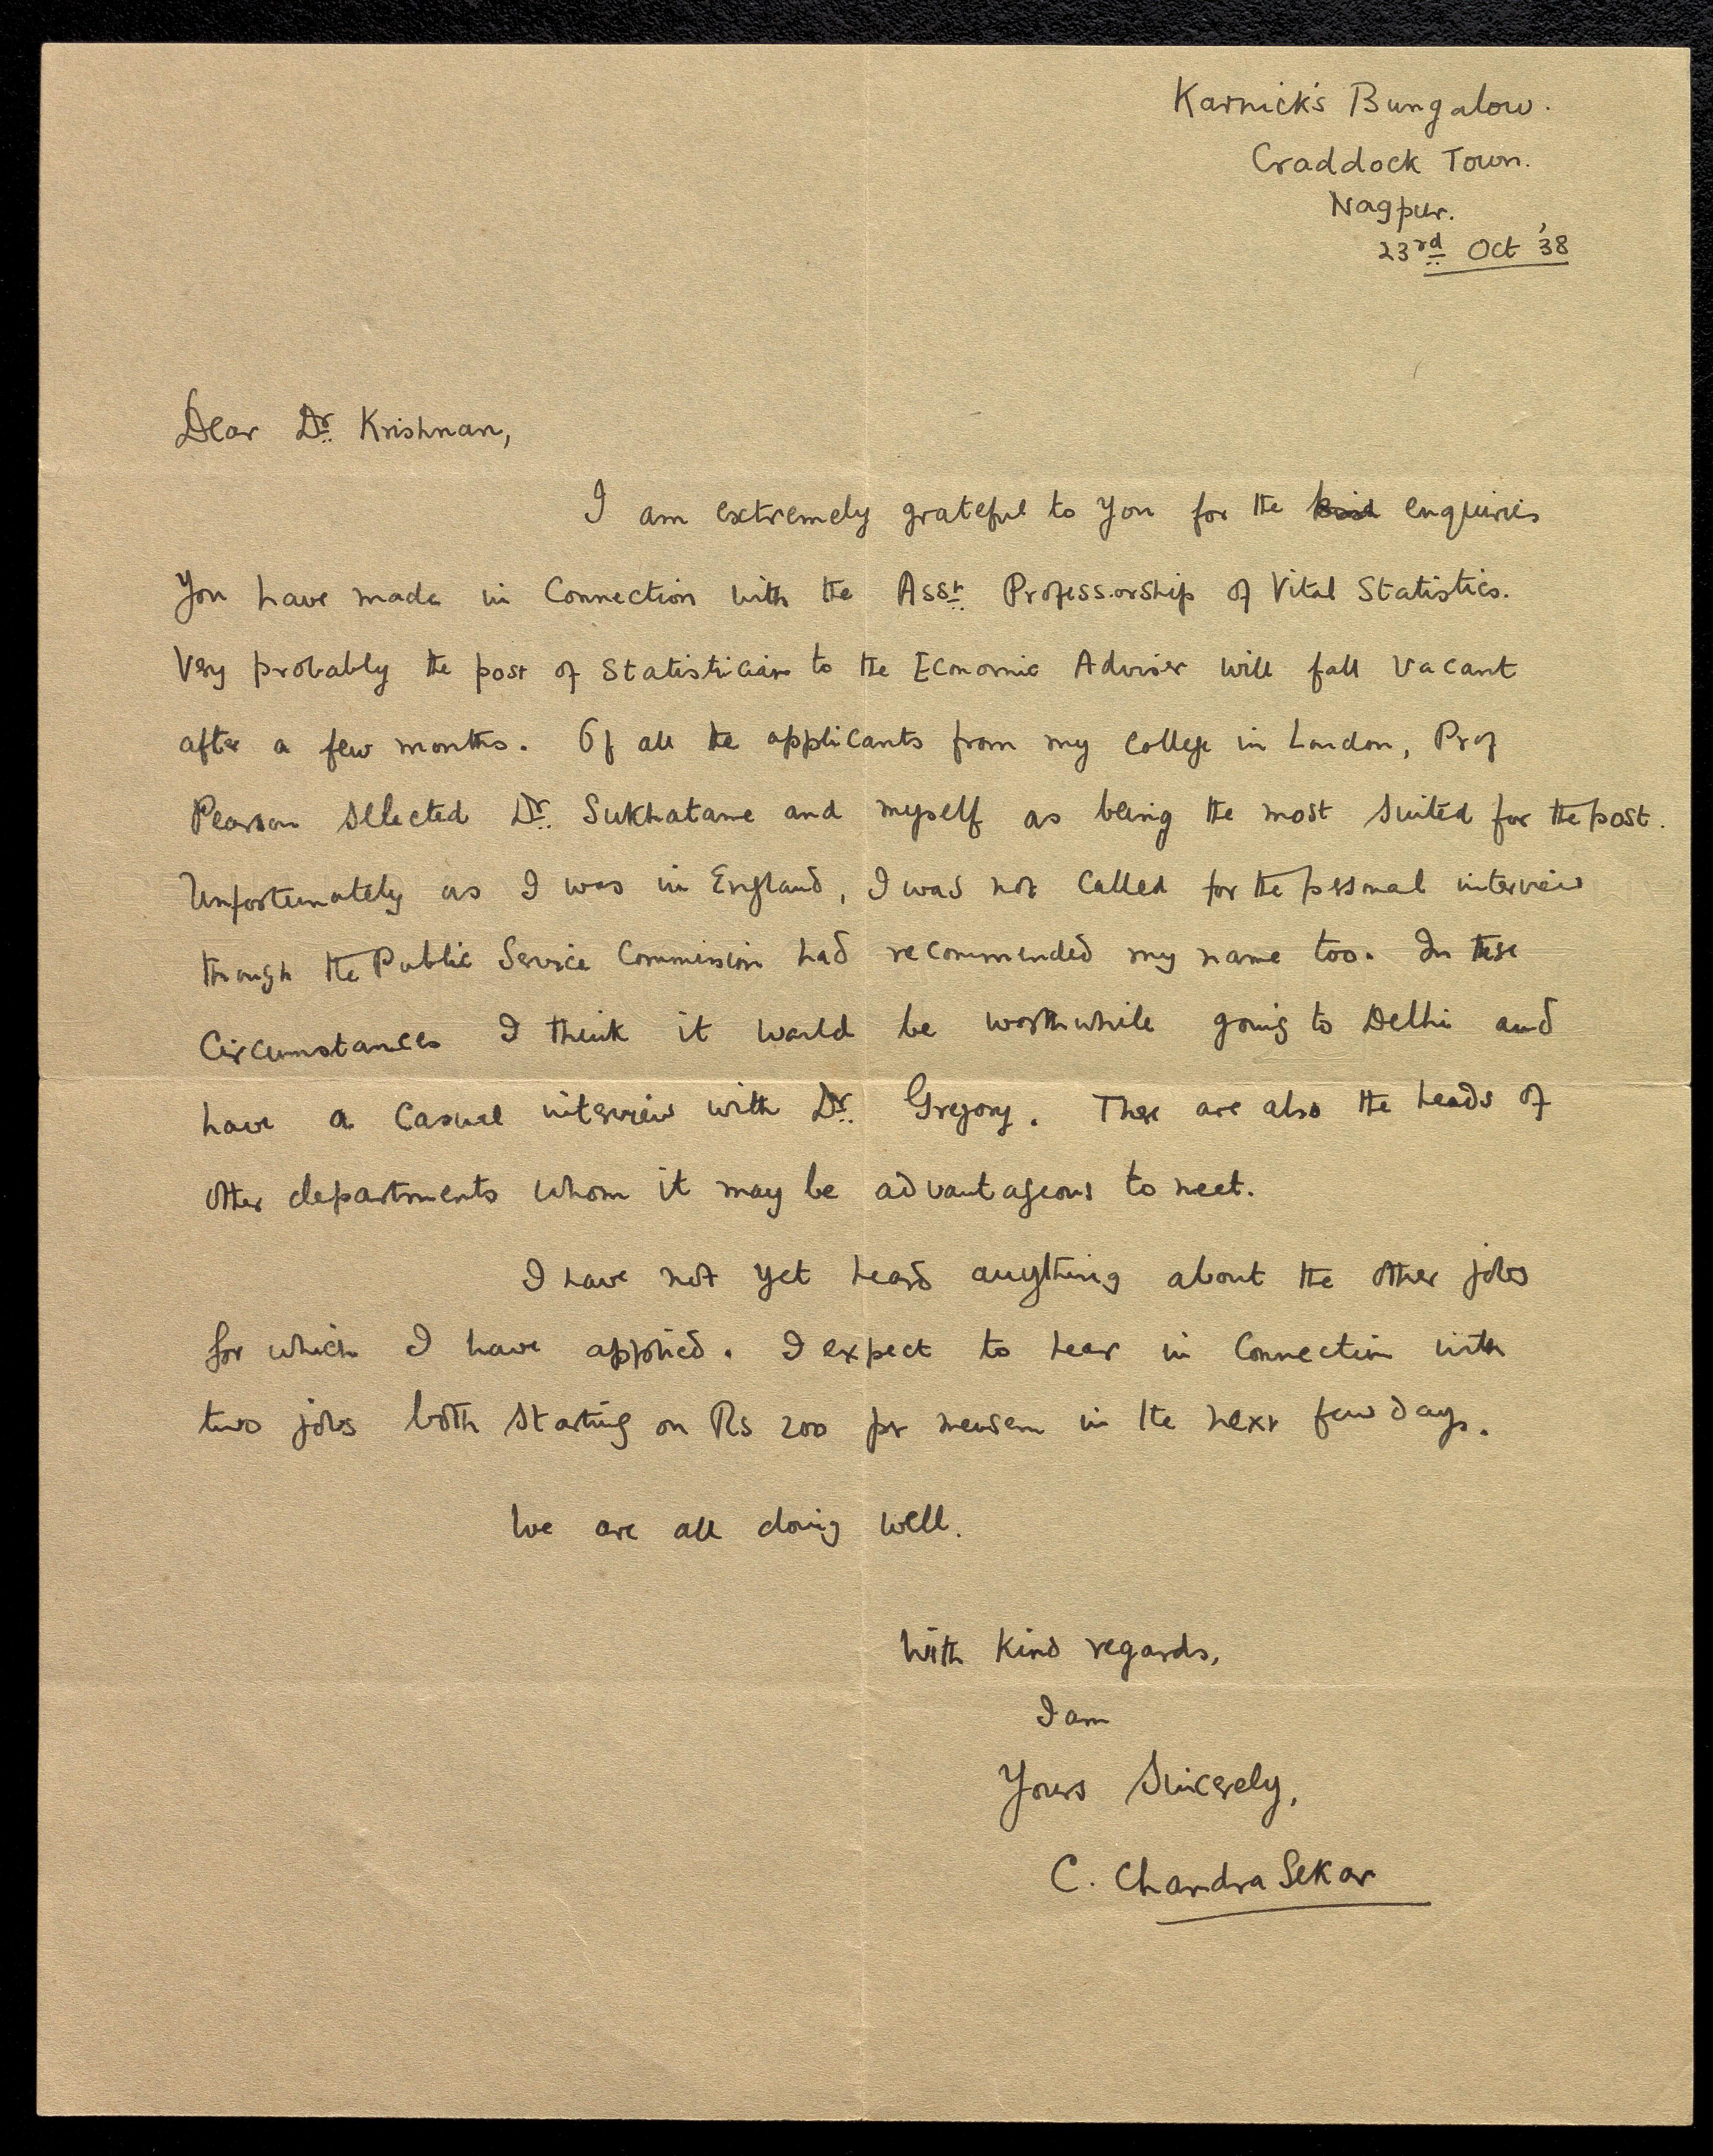 Karnick's Bungalow.
Craddock Town.
Nagpur.
23rd Oct '38
Dear Dr. Krishnan,
I am extremely grateful to you for the kind enquiries
you have made in Connection with the Asst. Professorship of Vital Statistics.
Very probably the post of Statistician to the Economic Adviser will fall vacant
after a few months. Of all the applicants from my College in London, Prof
Pearson selected Dr. Sukhatame and myself as being the most suited for the post.
Unfortunately as I was in England, I was not called for the personal interview
though the Public Service Commission had recommended my name too. In these
Circumstances I think it would be worthwhile going to Delhi and
have a Casual interview with Dr. Gregory. There are also the heads of
other departments whom it may be advantageous to meet.
I have not yet heard anything about the other jobs
for which I have applied. I expect to hear in Connection with
two jobs both starting on Rs 200 per mensem in the next few days.
We are all doing well.
With Kind regards,
I am
Yours Sincerely,
C. Chandra Sekar